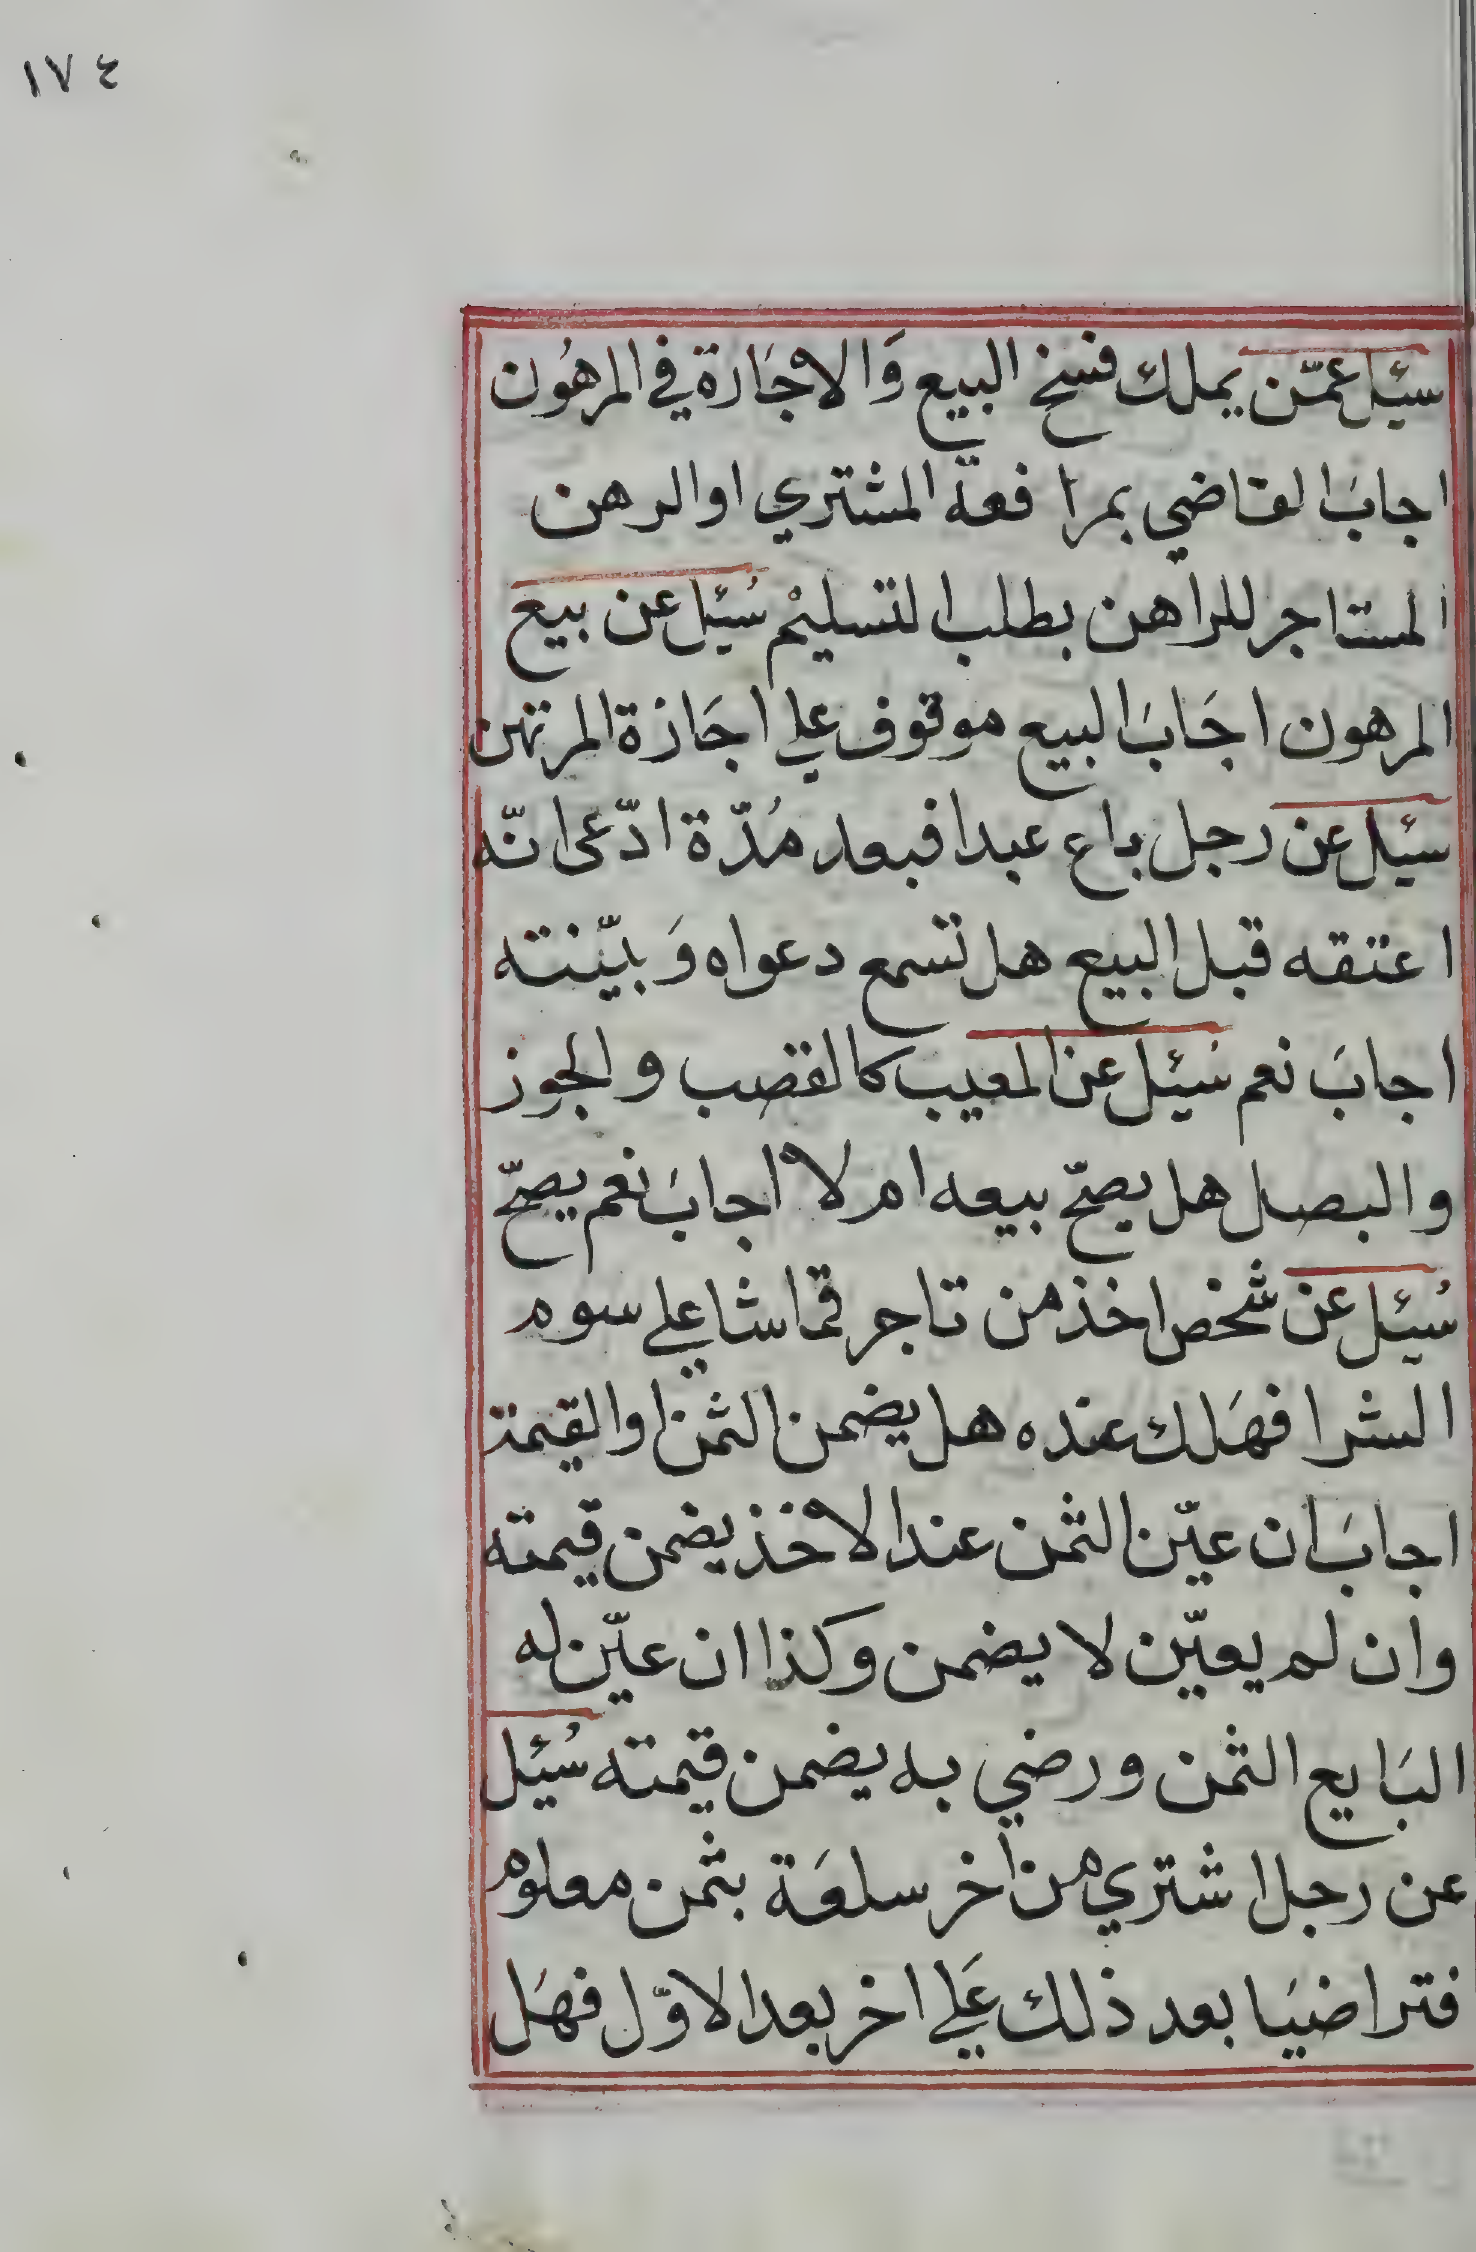 ١٧٤
سئيل عمّن يملك فسخ البيع وَالاجَارة في المرهُون
اجابَ القاضي بمرافعة المشتري او الرهن
المستاجر للراهن بطلب التسليْم سُئيل عن بيع
المرهون اجَابَ البيع موقوف علي اجَازة المرتهن
سئيل عن رجل باع عبدا فبعد مُدّة ادّعى انّه
اعتقه قبل البيع هل تسمع دعواه وَبيّنته
اجابَ نعم سُئيل عن المعيب كالقصب والجوز
والبصل هل يصحّ بيعه ام لا اجابَ نعم يصحّ
سُئيل عن شخص اخذ من تاجر قماشا علي سوم
الشرا فهَلك عنده هل يضمن الثمن او القيمة
اجابَ ان عيّن الثمن عند الاخذ يضمن قيمته
وان لم يعيّن لا يضمن وكذا ان عيّن له
البَايع الثمن ورضي به يضمن قيمته سُئيل
عن رجل اشتري من اخر سلعَة بثمن معلوم
فتراضيَا بعد ذلك عَلي اخر بعد الاوّل فهَل